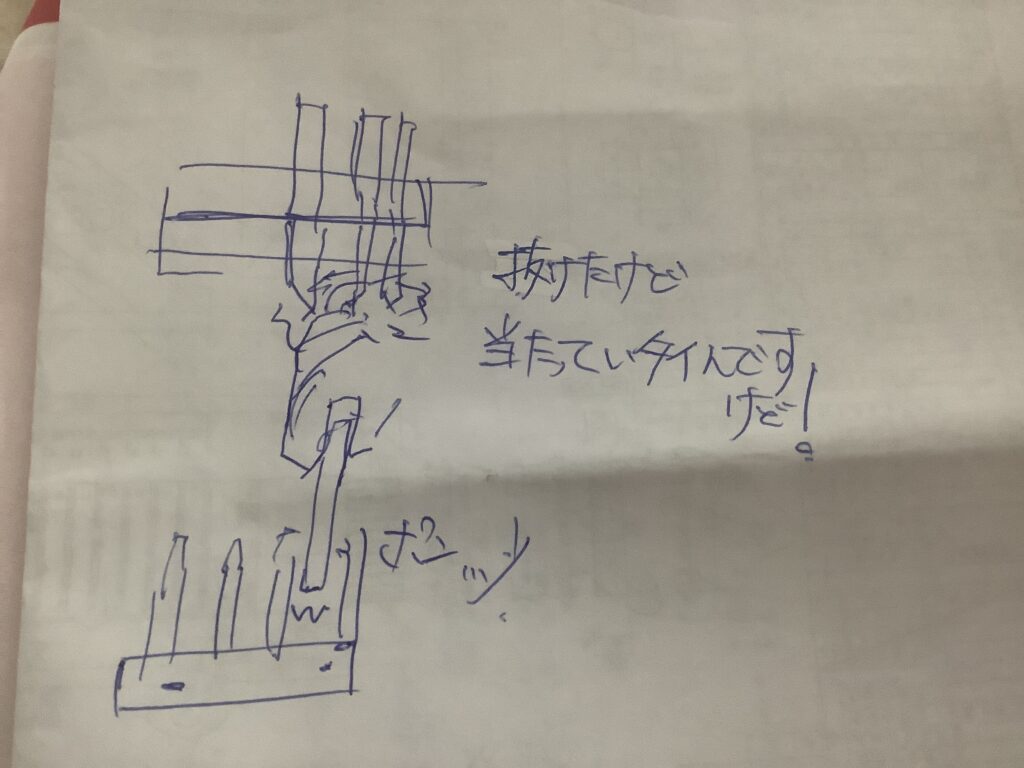 抜けたけど
当たっていタイんです
けど!